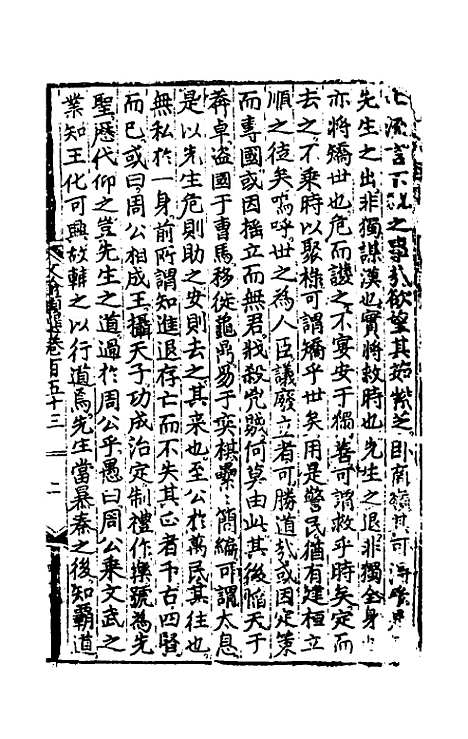 言下世之事哉欲望其茹紫之田商嶺其可得
先生之出非獨謀漢也實將救時也先生之退非獨全身
亦將矯世也危而護之不宴安于獨善可謂救乎時矣定而
去之不乘時以聚祿可謂矯乎世矣用是警民猶有建桓立
順之徒矣嗚呼世之為人臣議廢立者可勝道哉或因定策
而專國或因援立而無君戕殺兇殘何莫由此其後惛天于
莽卓盜國于曹馬移徙龜鼎易于奕棋纍纍簡編可謂太息
是以先生危則助之安則去之其來也至公於萬民其往也
無私於一身前所謂知進退存亡而不失其正者千古四賢
而已或曰周公相成王攝天子功成治定制禮作樂號為先
聖歷代仰之豈先生之道過於周公乎愚曰周公乘文武之
業知王化可興故輔之以行道焉先生當暴秦之後知霸道
文翰類選卷百五十三 二